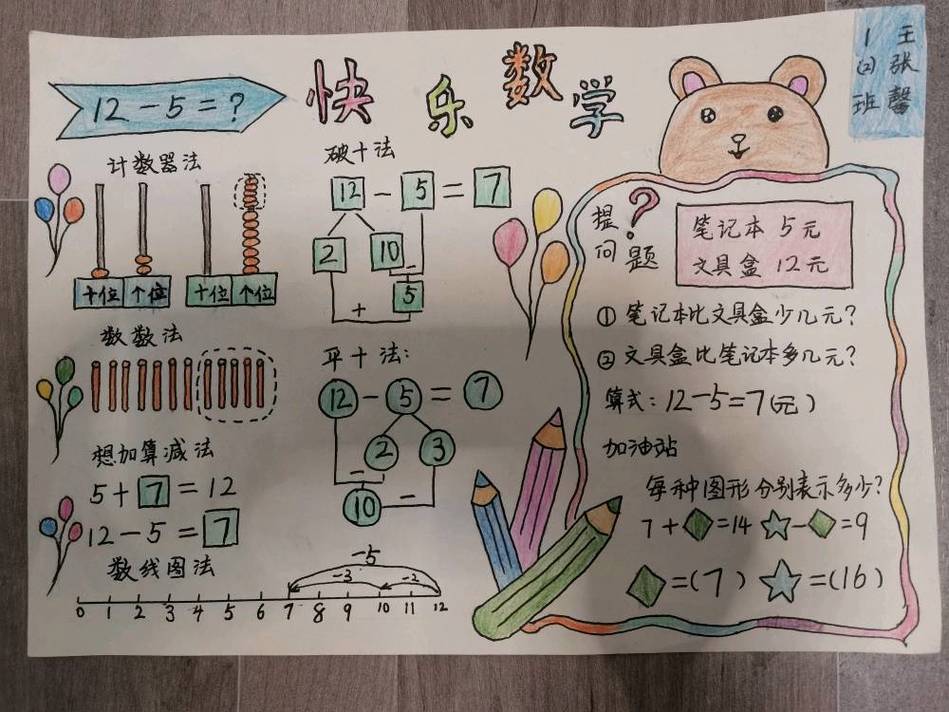 快乐数学
1(2)班
王张馨
12-5=?
计数器法
十位 个位 十位 个位
数数法
想加算减法
5+7=12
12-5=7
数线图法
-5
-3 -2
0 1 2 3 4 5 6 7 8 9 10 11 12
破十法
12-5=7
2 10
-
5
+
平十法:
12-5=7
2 3
- -
10
提问题?
笔记本 5元
文具盒 12元
① 笔记本比文具盒少几元?
② 文具盒比笔记本多几元?
算式:12-5=7(元)
加油站
每种图形分别表示多少?
7+◆=14 ☆-◆=9
◆=(7) ☆=(16)